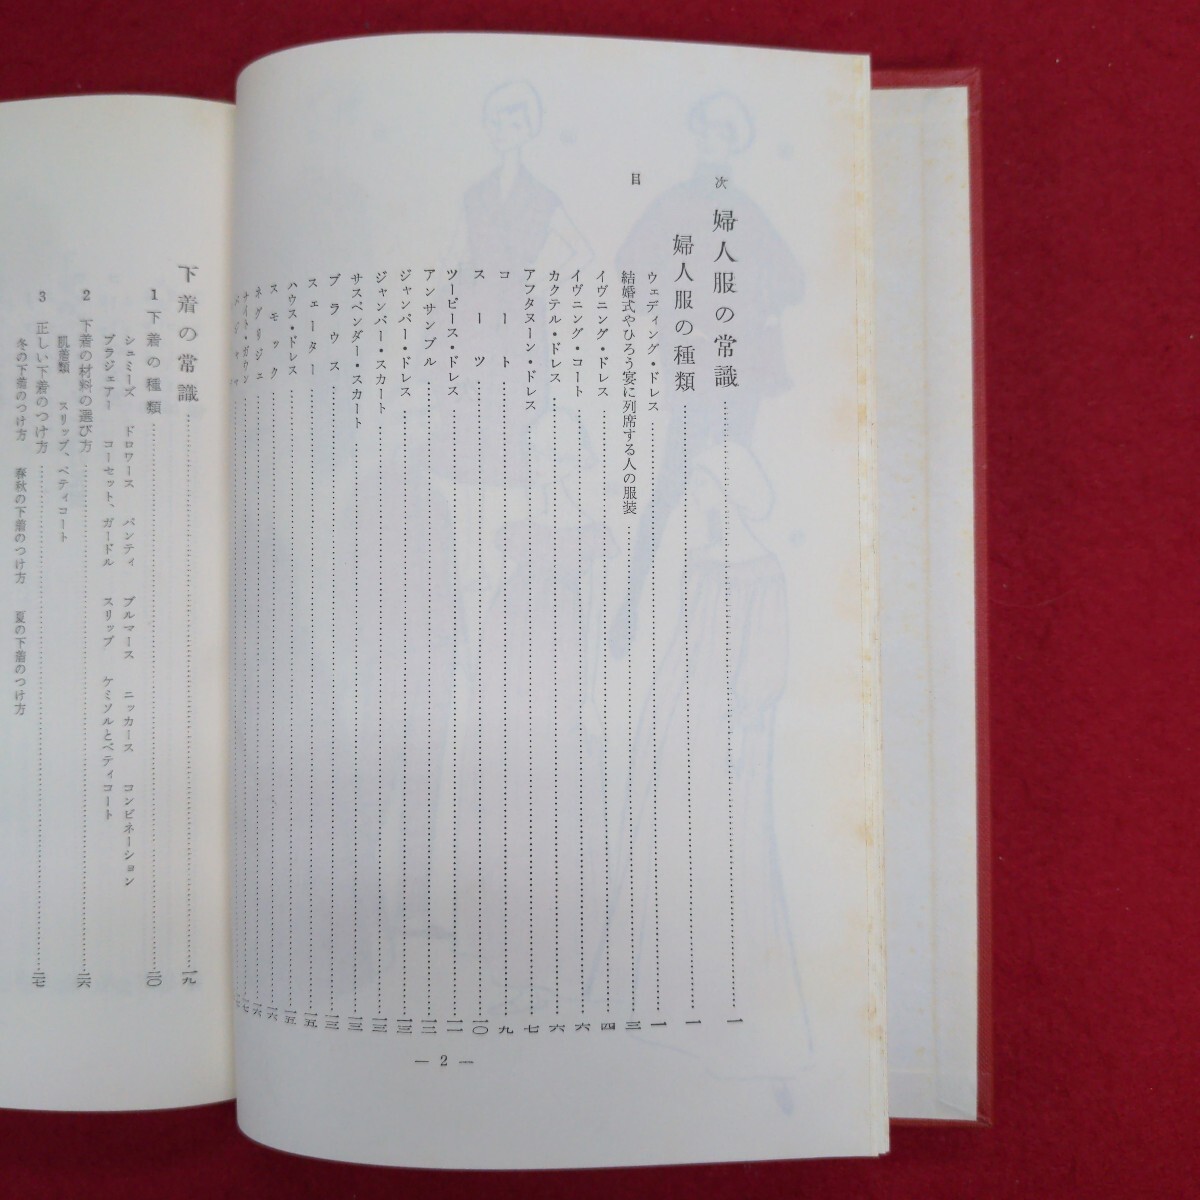 目次
婦人服の常識……一
婦人服の種類……一
ウェディング・ドレス……一
結婚式やひろう宴に列席する人の服装……三
イヴニング・ドレス……四
イヴニング・コート……六
カクテル・ドレス……六
アフタヌーン・ドレス……七
コート……九
スーツ……一〇
ツーピース・ドレス……一一
アンサンブル……一二
ジャンパー・ドレス……一三
ジャンパー・スカート……一三
サスペンダー・スカート……一三
ブラウス……一三
スェーター……一五
ハウス・ドレス……一五
スモック……一六
ネグリジェ……一六
ナイト・ガウン……一七
パジャマ
— 2 —
下着の常識……一九
1 下着の種類……二〇
シュミーズ ドロワース パンティ ブルマース ニッカース コンビネーション
ブラジェアー コーセット、ガードル スリップ ケミソルとペティコート
2 下着の材料の選び方……二六
肌着類 スリップ、ペティコート
3 正しい下着のつけ方……二七
冬の下着のつけ方 春秋の下着のつけ方 夏の下着のつけ方